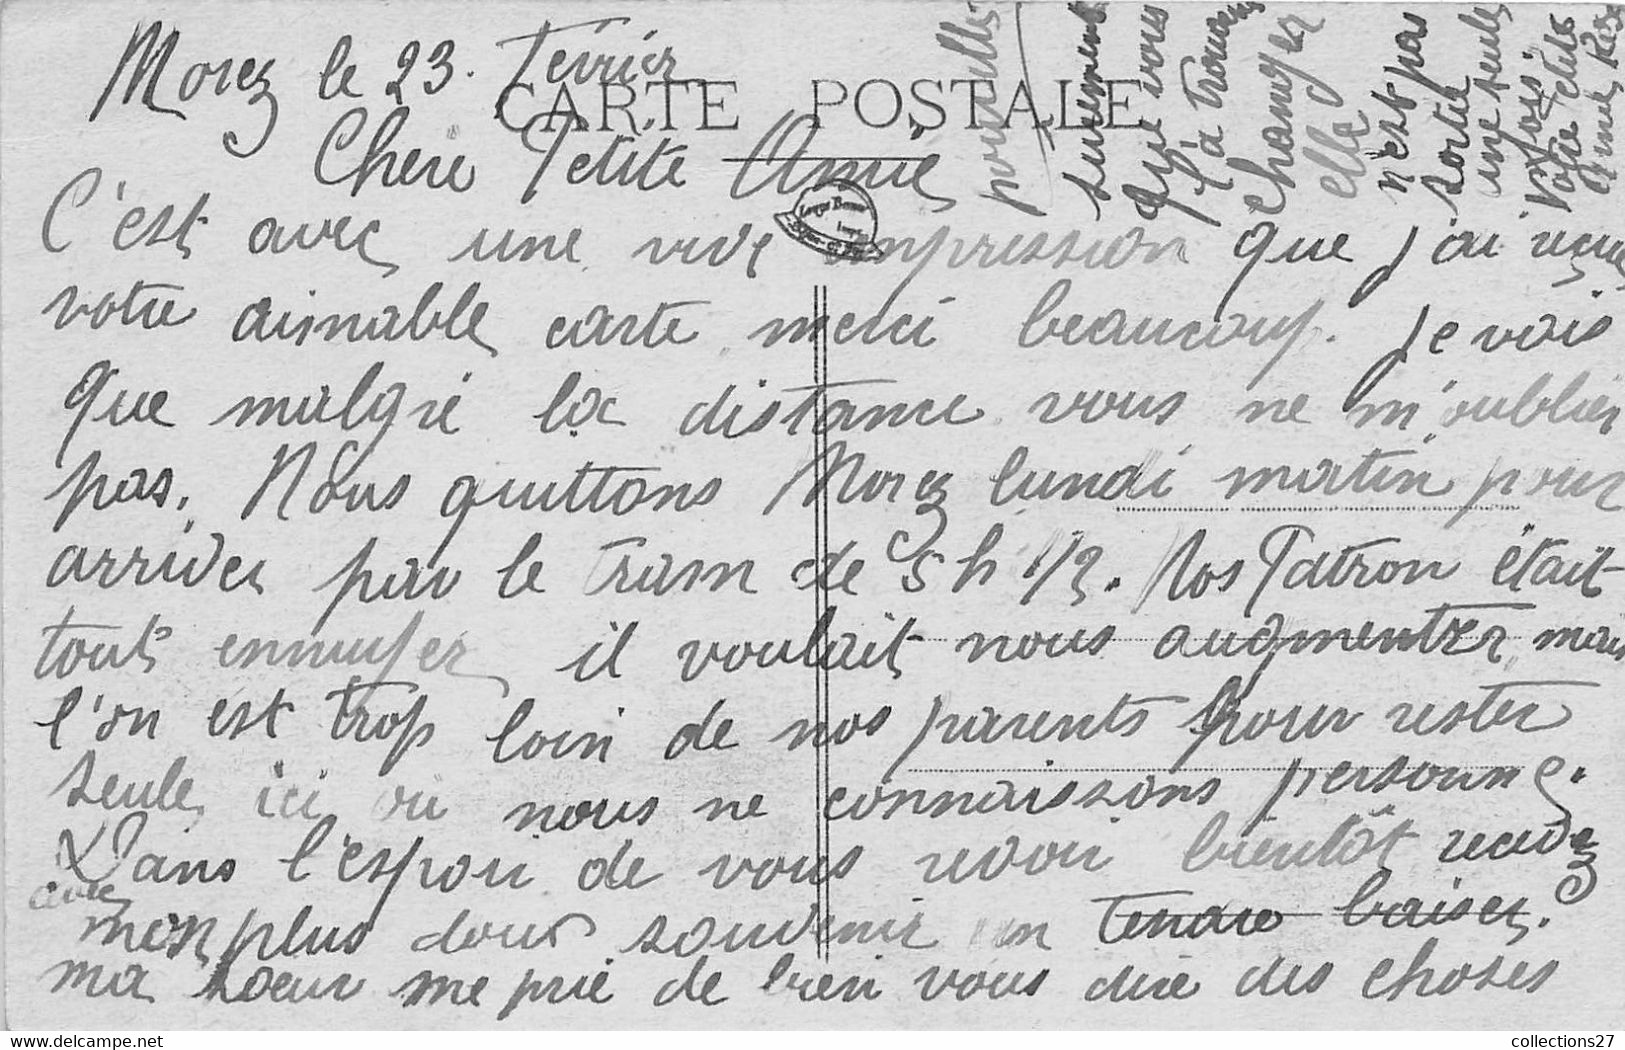 Morez le 23. Fevrier
CARTE POSTALE
Chere Petite Amie
C'est avec une vive impression que j'ai reçue
votre aimable carte merci beaucoup. je vois
que malgré la distance vous ne m'oublier
pas. Nous quittons Morez lundi matin pour
arriver par le tram de 5 h 1/2. Nos Patron était
tout ennuyer il voulait nous augmenter mais
l'on est trop loin de nos parents pour rester
seule ici ou nous ne connaissons personne.
Dans l'espoir de vous revoir bientôt recevez
avec
mon plus doux souvenir un tendre baiser.
ma soeur me prie de bien vous dire des choses
nouvelles
surement
que vous
l'a trouver
changer
elle
n'est pas
sortie
une seule
fois.
Votre petite
amie
delcampe.net
collections27